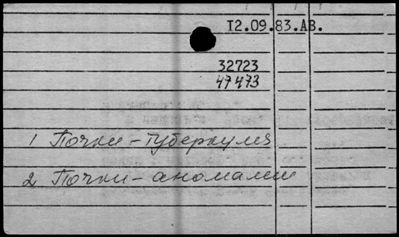 Т2.09.83.АВ.
32723
47473
1 Почки - туберкулез
2 Почки - аномалии